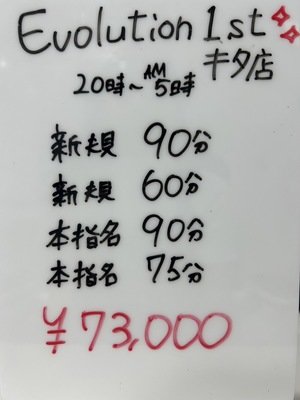 Evolution 1st
キタ店
20時～AM5時
新規 90分
新規 60分
本指名 90分
本指名 75分
¥73,000